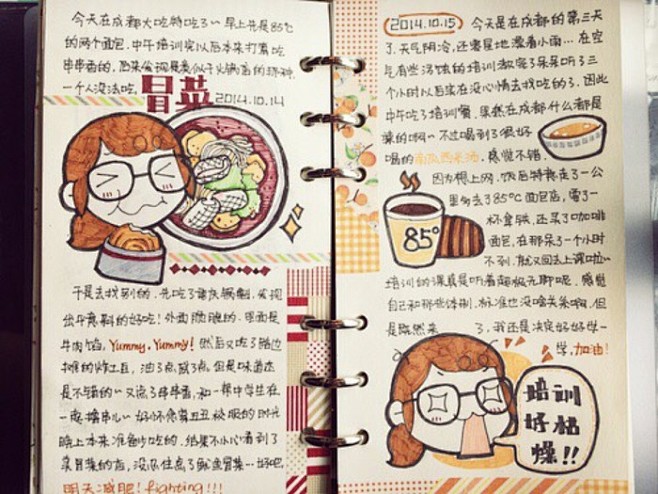 今天在成都大吃特吃了～ 早上先是85℃
的两个面包，中午培训完以后本来打算吃
串串香的，后来发现是类似于火锅店的那种，
一个人没法吃，
冒菜
2014.10.14
于是去找别的，先吃了重庆锅魁，发现
出乎意料的好吃！外面脆脆的，里面是
牛肉馅，Yummy，Yummy！然后又吃了路边
摊的炸土豆，油了点咸了点，但是味道还
是不错的～又点了串串香，和一群中学生在
一起撸串儿～
晚上本来准备少吃的，结果不小心看到了
冒菜的店，没忍住点了鱿鱼冒菜…好吧，
明天减肥！fighting!!!
2014.10.15
今天是在成都的第三天
了，天气阴冷，还零星地飘着小雨…在空
气有些浑浊的培训教室了呆呆听了三
个小时以后实在没心情去找吃的了，因此
中午吃了培训餐，果然在成都什么都是
辣的啊～不过喝到了很好
喝的南瓜西米汤，感觉不错，
因为想上网，饭后特意走了一公
里多去了85℃面包店，要了一
杯拿铁，还买了咖啡
面包，在那呆了一个小时
不到，就又回去上课啦～
85°
培训的课真是听着超级无聊呢，感觉
自己和那些体制，标准也没啥关系啊，但
是既然来了，我还是决定好好学
学，加油！
培训
好枯
燥!!